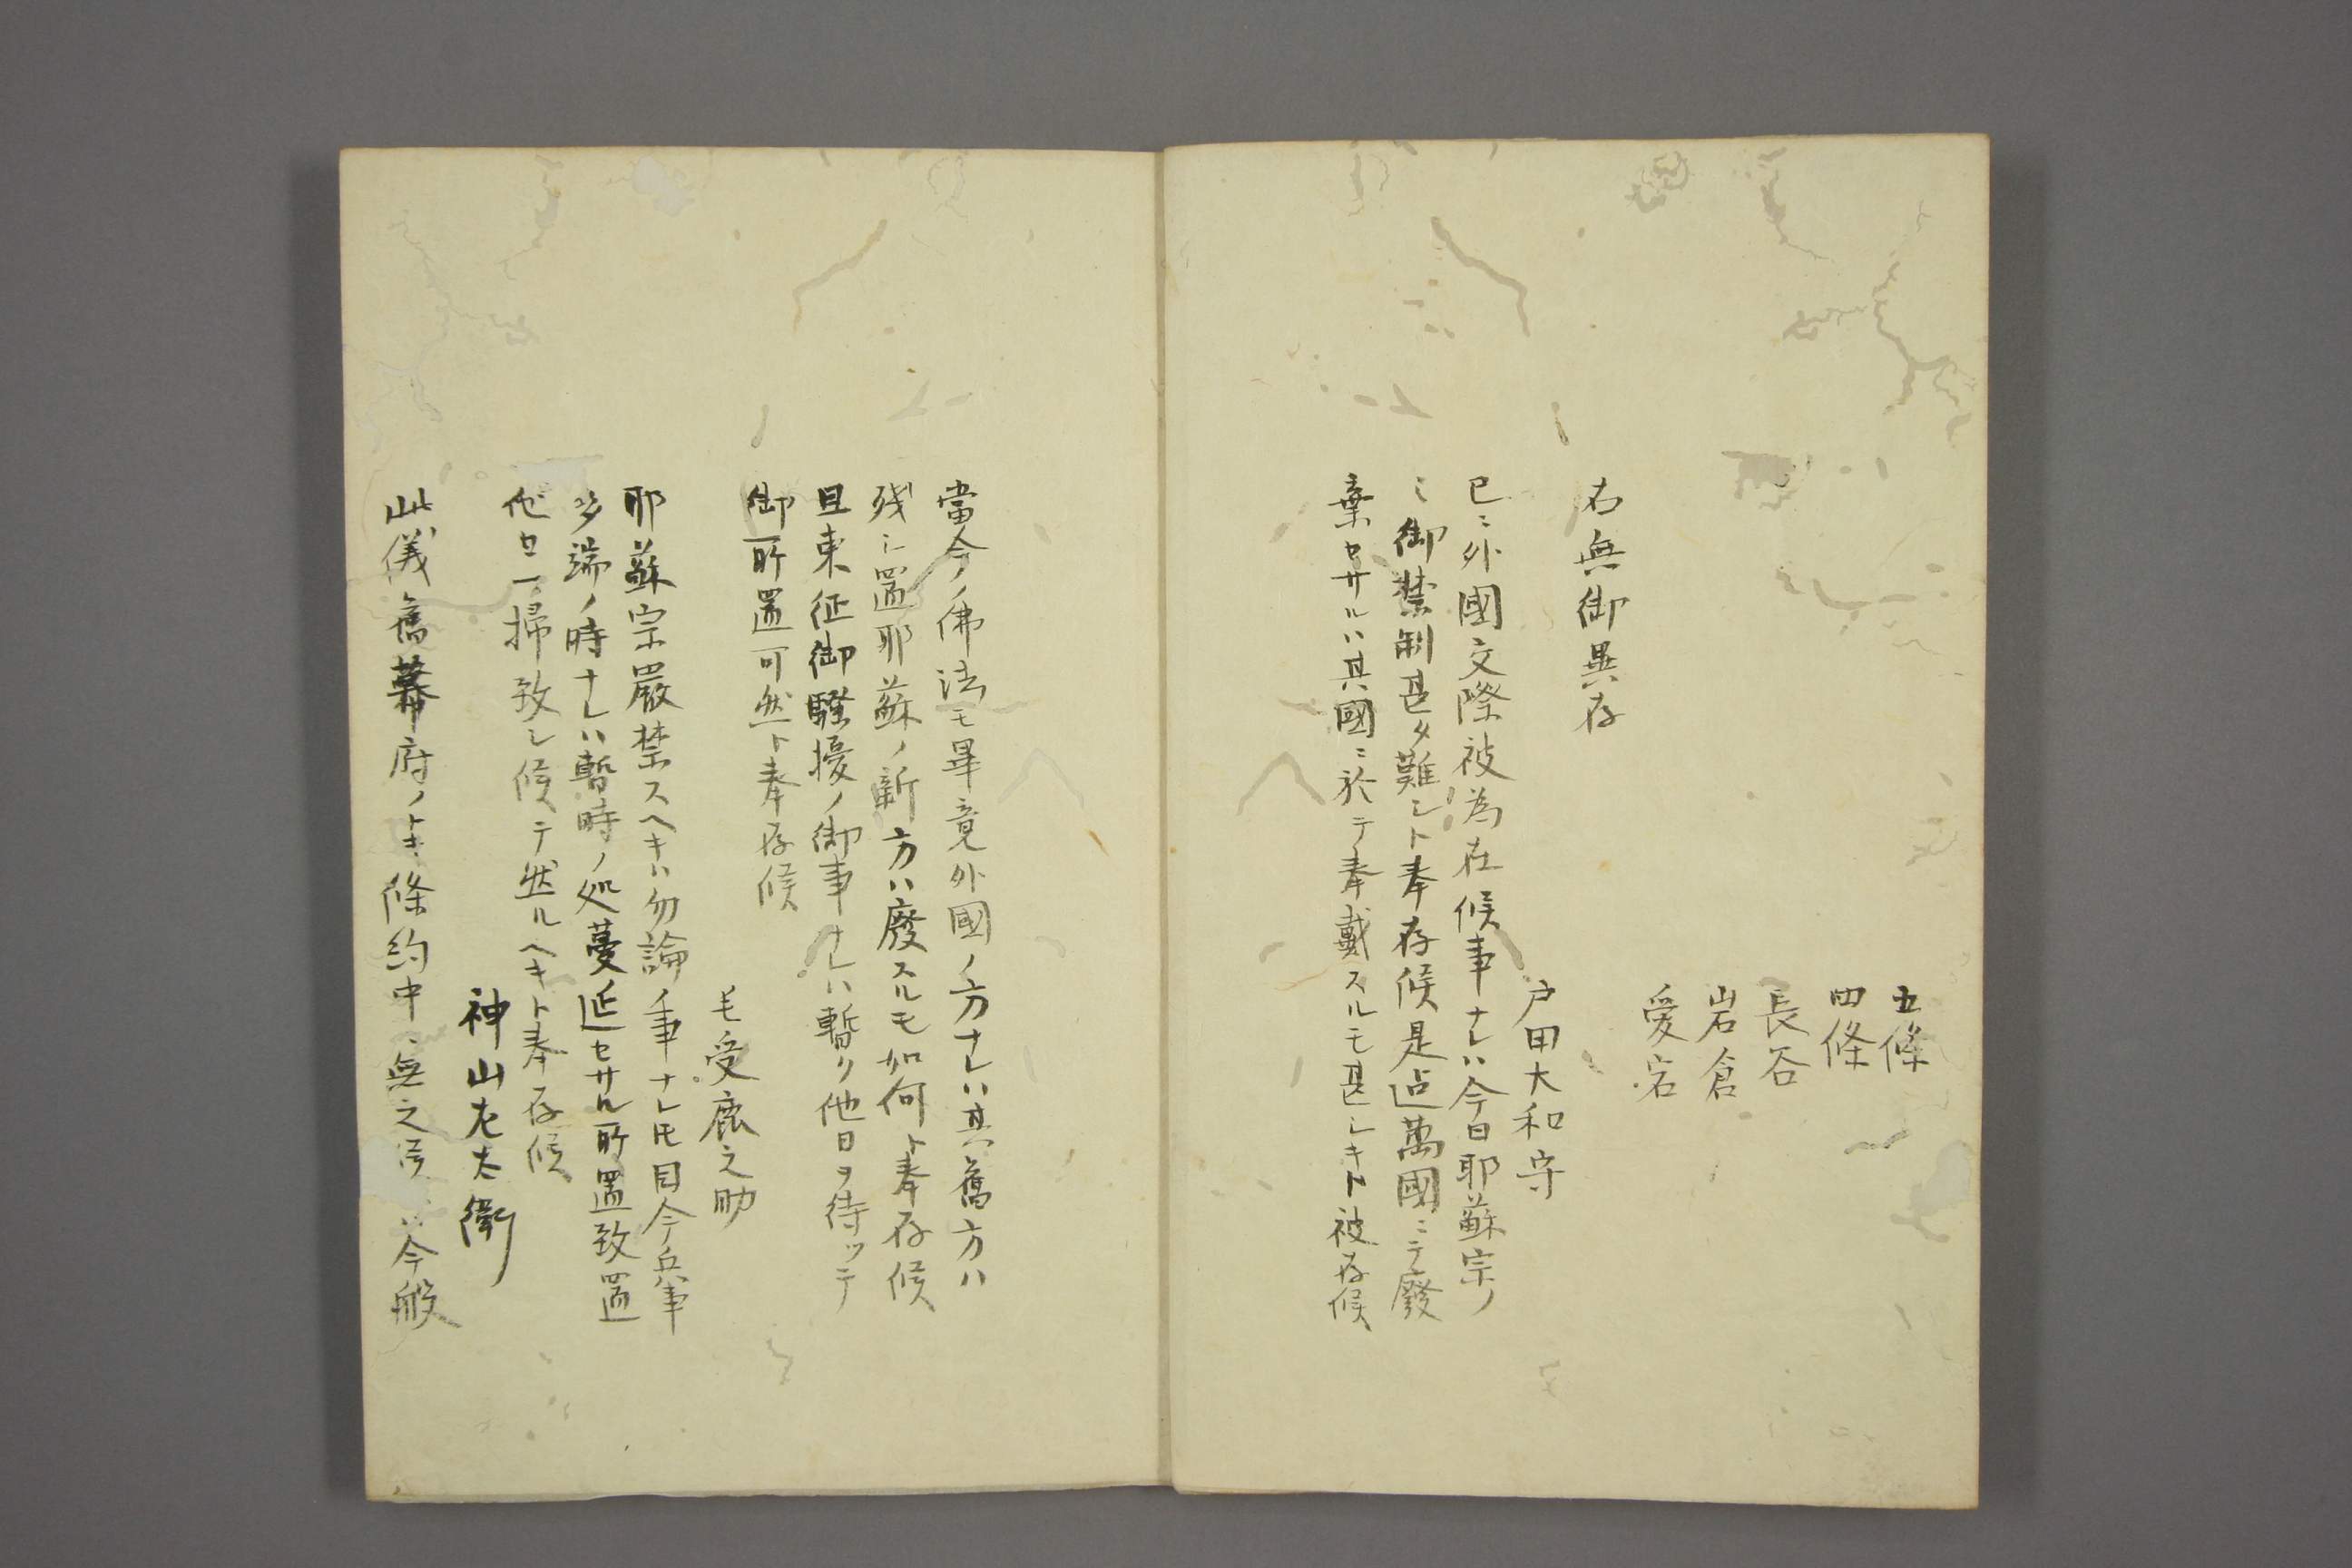 五條
四條
長谷
岩倉
愛宕
右無御異存
戸田大和守
已ニ外國交際被為在候事ナレハ今日耶蘇宗ノ
ミ御禁制甚タ難シト奉存候是迠萬國ニテ廢
棄セサルハ其國ニ於テ奉戴スルモ甚シキト被存候
當今ノ佛法モ畢竟外國ノ方ナレハ其舊方ハ
残シ置耶蘇ノ新方ハ廢スルモ如何ト奉存候
且東征御騒擾ノ御事ナレハ暫ク他日ヲ待ッテ
御所置可然ト奉存候
毛受鹿之助
耶蘇宗嚴禁スヘキハ勿論ノ事ナレ𪜈目今兵事
多端ノ時ナレハ暫時ノ処蔓延セサル所置致置
他日一掃致シ候テ然ルヘキト奉存候
神山左太衛
此儀舊幕府ノトキ條約中ニ無之候ハ今般